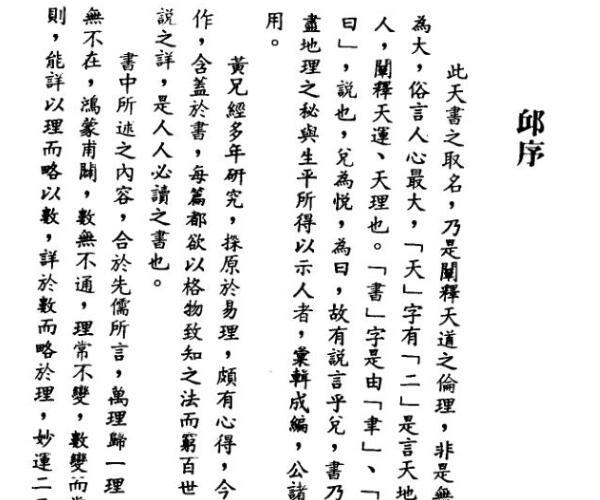 邱序
此天書之取名，乃是闡釋天道之倫理，非是無
為大，俗言人心最大，「天」字有「二」是言天地
人，闡釋天運、天理也。「書」字是由「聿」、「
曰」，說也，兌為悅，為曰，故有說言乎兌，書乃
盡地理之秘與生平所得以示人者，彙輯成編，公諸
用。
黃兄經多年研究，探原於易理，頗有心得，今
作，含蓋於書，每篇都欲以格物致知之法而窮百世
說之詳，是人人必讀之書也。
書中所述之內容，合於先儒所言，萬理歸一理
無不在，鴻蒙甫闢，數無不通，理常不變，數變而常
則，能詳以理而略以數，詳於數而略於理，妙運二